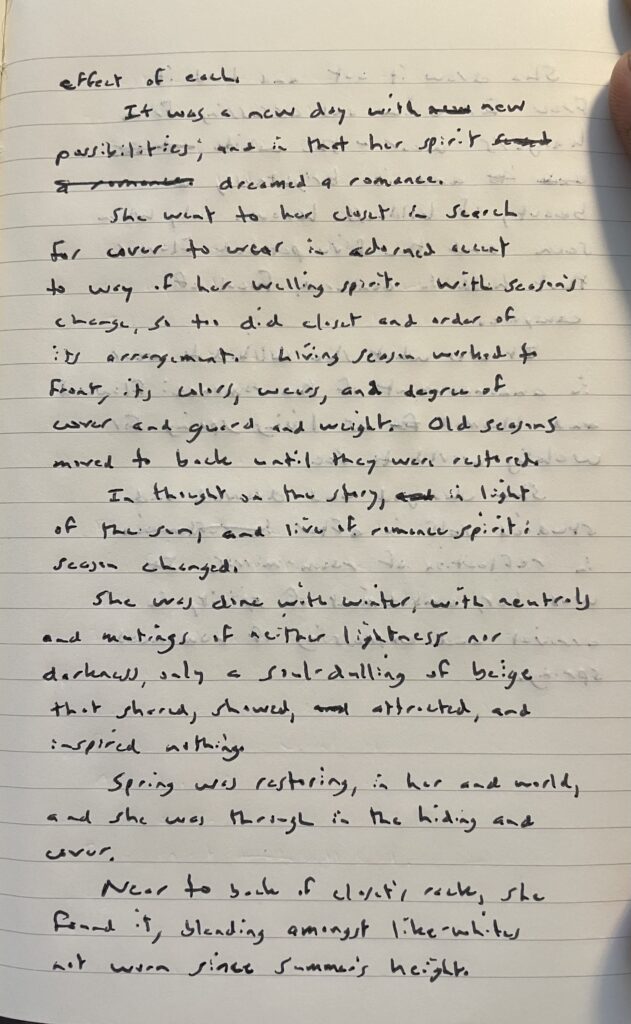 effect of each.
It was a new day with new new
possibilities; and in that her spirit
a romance. dreamed a romance.
She went to her closet in search
for cover to wear in adorned accent
to way of her welling spirit. With season's
change, so too did closet and order of
its arrangement. Living season worked to
front, its colors, wears, and degree of
cover and guard and weight. Old seasons
moved to back until they were restored.
In thought on the story, and in light
of the sun, and live of romance spirit:
season changed.
She was done with winter, with neutrals
and mutings of neither lightness nor
darkness, only a soul-dulling of beige
that shared, showed, and attracted, and
inspired nothing.
Spring was restoring, in her and world,
and she was through in the hiding and
cover.
Near to back of closet's rack, she
found it, blending amongst like-whites
not worn since summer's height.